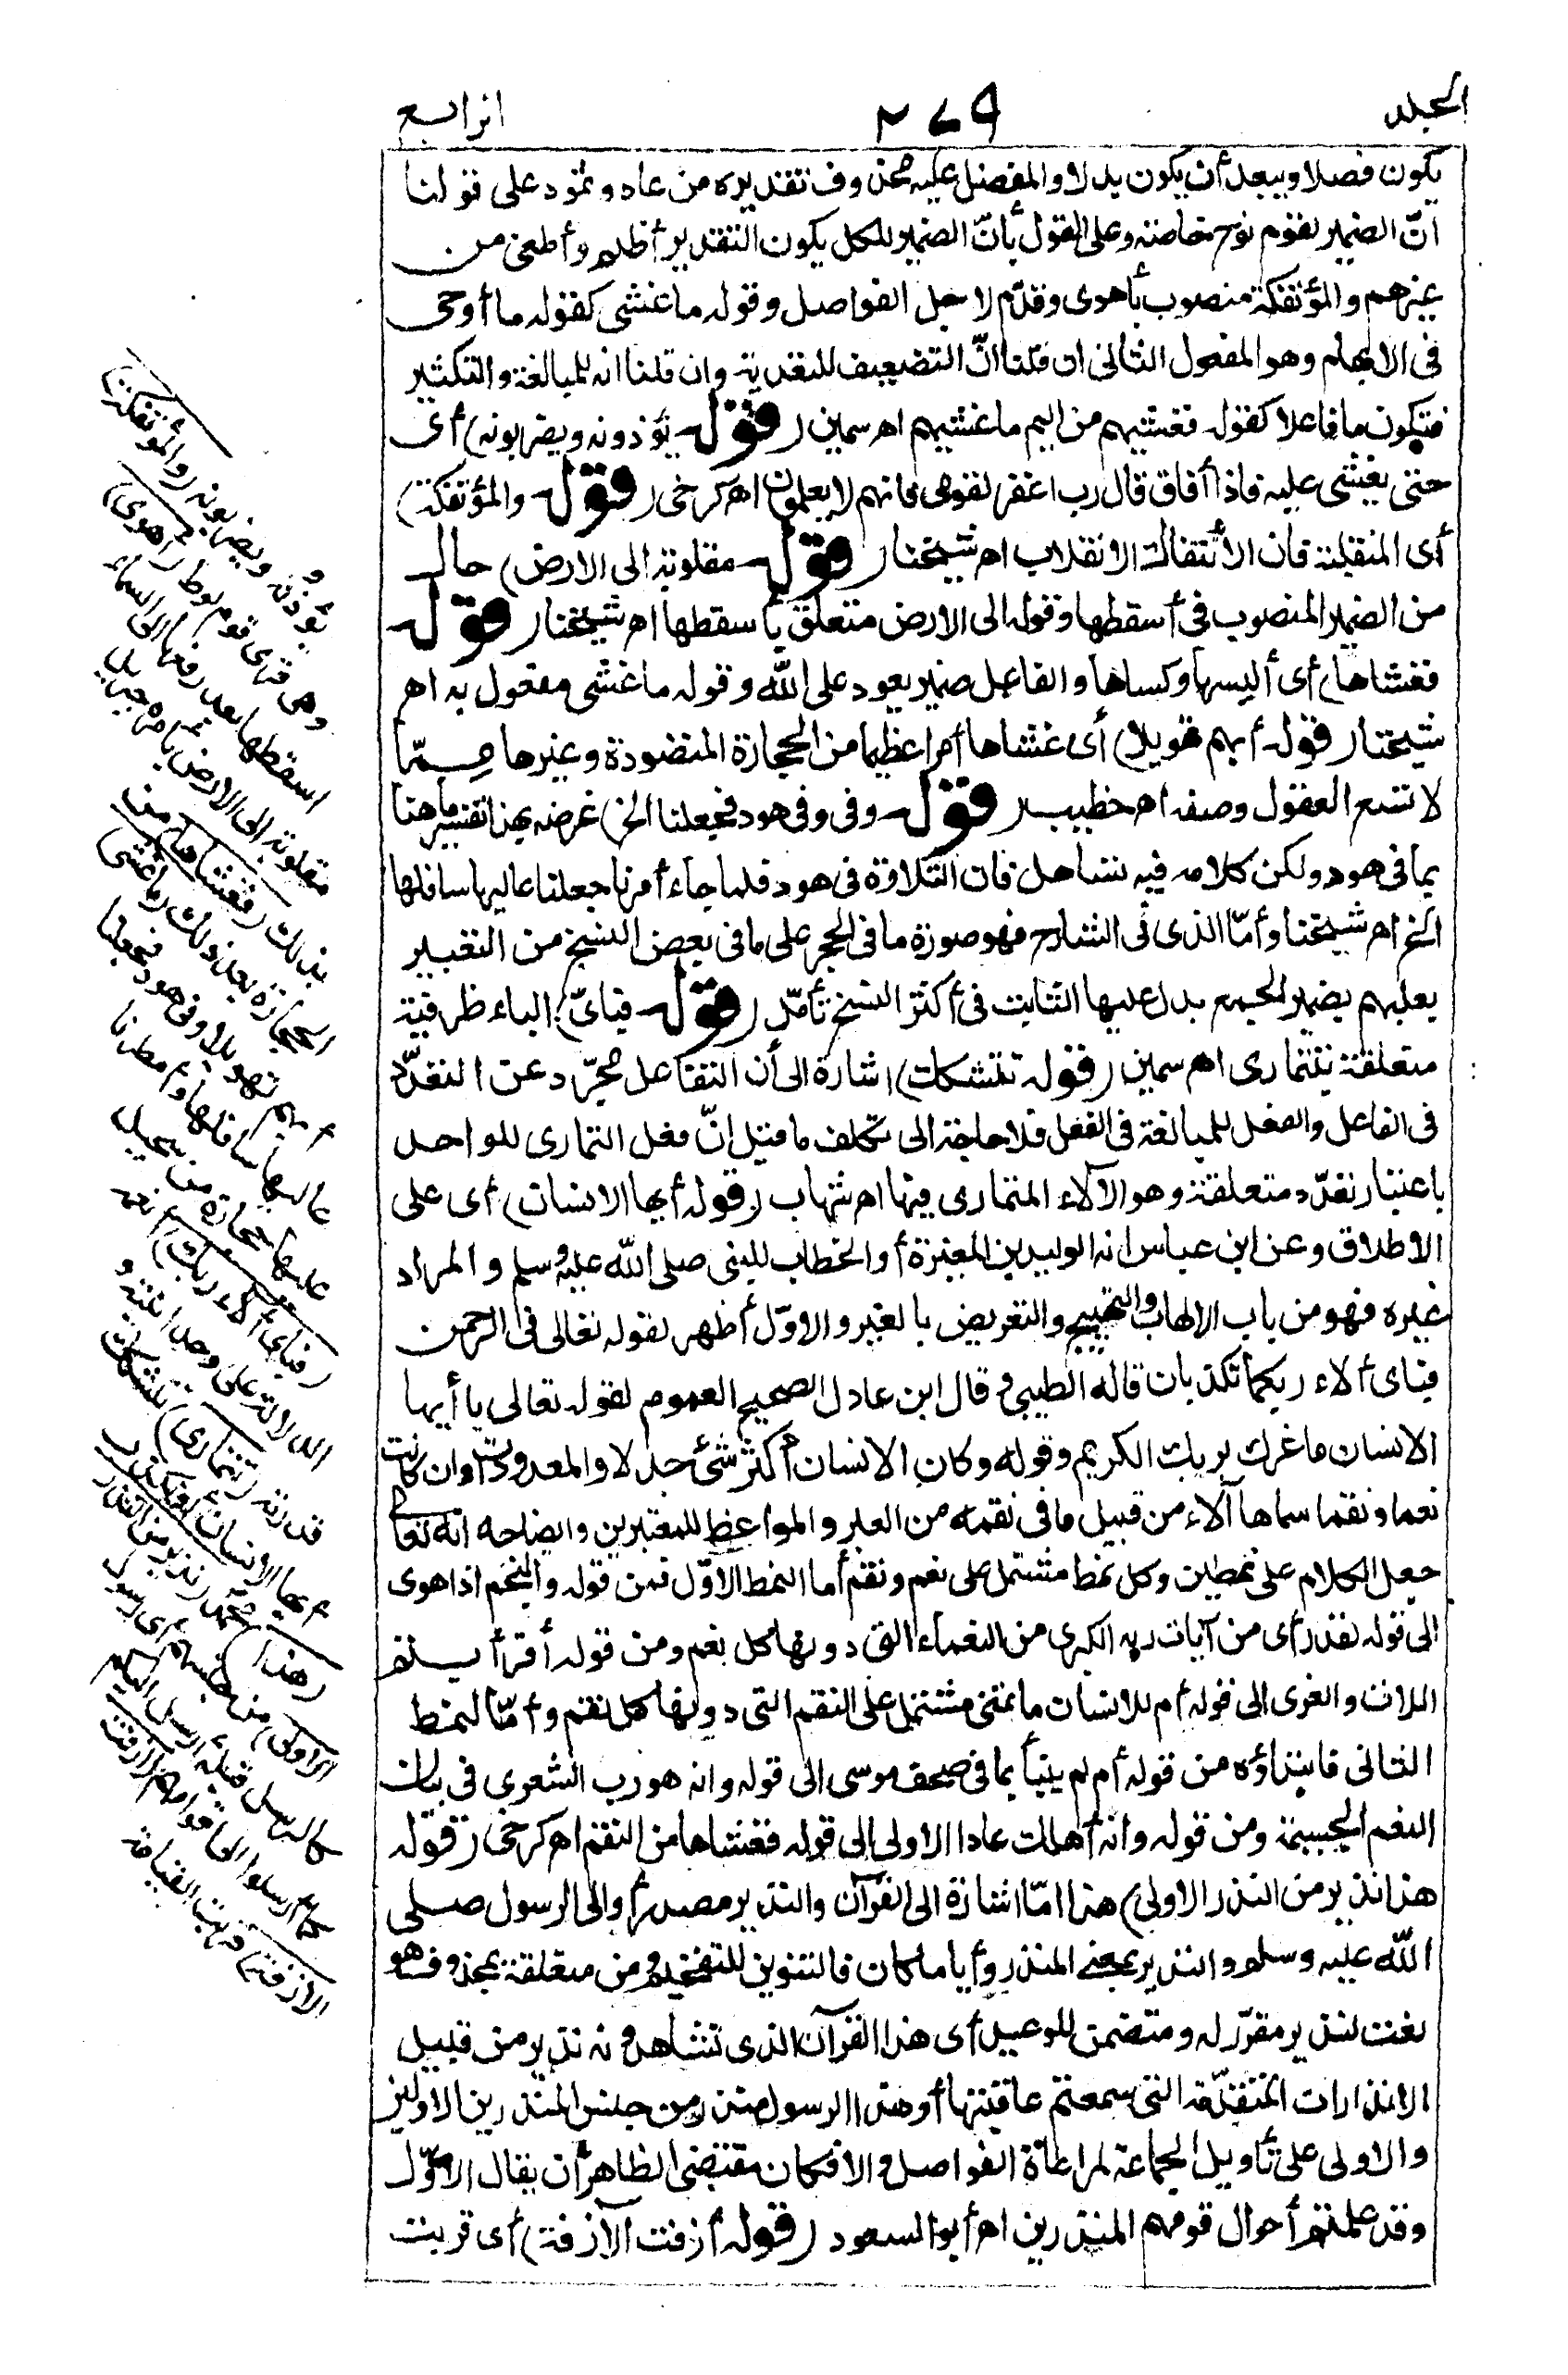 الجلد
٢٧٩
الرابع
يكون فصلا ويبعد أن يكون بدلا والمفضل عليه محذوف تقديره من عاد وثمود على قولنا
انّ الضمير لقوم نوح خاصة وعلى القول بأنّ الضمير للكل يكون التقدير أظلم وأطغى من
غيرهم والمؤتفكة منصوب بأهوى وقدّم لاجل الفواصل وقوله ما غشى كقوله ما أوحى
فى الابهام وهو المفعول الثانى ان قلنا انّ التضعيف للتعدية وان قلنا انه للمبالغة والتكثير
فتكون ما فاعلا كقوله فغشيهم من اليم ما غشيهم اهـ سمين (قوله يؤذونه ويضربونه) أى
حتى يغشى عليه فاذا أفاق قال رب اغفر لقومى فانهم لا يعلمون اهـ كرخى (قوله والمؤتفكة)
أى المنقلبة فان الائتفاك الانقلاب اهـ شيخنا (قوله مقلوبة الى الارض) حال
من الضمير المنصوب فى أسقطها وقوله الى الارض متعلق بأسقطها اهـ شيخنا (قوله
فغشاها) أى ألبسها وكساها والفاعل ضمير يعود على الله وقوله ما غشى مفعول به اهـ
شيخنا (قوله أبهم تهويلا) أى غشاها أمرا عظيما من الحجارة المنضودة وغيرها ممّا
لا تسع العقول وصفه اهـ خطيب (قوله وفى وفى هود فجعلنا الخ) غرضه بهذا تفسير ما هنا
بما فى هود ولكن كلامه فيه تساهل فان التلاوة فى هود فلما جاء أمرنا جعلنا عاليها سافلها
الخ اهـ شيخنا وأمّا الذى فى الشارح فهو صورة ما فى الحجر على ما فى بعض النسخ من التعبير
بعليهم بضمير الجمع بدل عليها الثابت فى أكثر النسخ تأمّل (قوله فبأىّ) الباء ظرفية
متعلقة بتتمارى اهـ سمين (قوله تتشكك) اشارة الى أن التفاعل مجرّد عن التعدّد
فى الفاعل والفعل للمبالغة فى الفعل فلا حاجة الى تكلف ما قيل انّ فعل التمارى للواحد
باعتبار تعدّد متعلقة وهو الآلاء المتمارى فيها اهـ شهاب (قوله أيها الانسان) أى على
الاطلاق وعن ابن عباس انه الوليد بن المغيرة أو الخطاب للنبى صلى الله عليه وسلم والمراد
غيره فهو من باب الالهاب والتهييج والتعريض بالغير والاوّل أظهر لقوله تعالى فى الرحمن
فبأى آلاء ربكما تكذبان قاله الطيبى وقال ابن عادل الصحيح العموم لقوله تعالى يا أيها
الانسان ما غرك بربك الكريم وقوله وكان الانسان أكثر شئ جدلا والمعدودات وان كانت
نعما ونقما سماها آلاء من قبيل ما فى نقمه من العبر والمواعظ للمعتبرين وايضاحه انه تعالى
جعل الكلام على نمطين وكل نمط مشتمل على نعم ونقم أما النمط الاوّل فمن قوله والنجم اذا هوى
الى قوله لقد رأى من آيات ربه الكبرى من النعماء التى دونها كل نعم ومن قوله أفرأيتم
اللات والعزى الى قوله أم للانسان ما تمنى مشتمل على النقم التى دونها كل نقم وأمّا النمط
الثانى فابتداؤه من قوله أم لم ينبأ بما فى صحف موسى الى قوله وانه هو رب الشعرى فى بيان
النعم الجسيمة ومن قوله وانه أهلك عادا الاولى الى قوله فغشاها من النقم اهـ كرخى (قوله
هذا نذير من النذر الاولى) هذا امّا اشارة الى القرآن والنذير مصدر أو الى الرسول صلى
الله عليه وسلم والنذير بمعنى المنذر وأيا ما كان فالتنوين للتفخيم ومن متعلقة بمحذوف هو
نعت لنذير مقرّر له ومتضمن للوعيد أى هذا القرآن الذى تشاهدونه نذير من قبيل
الانذارات المتقدّمة التى سمعتم عاقبتها أو هذا الرسول منذر من جنس المنذرين الاولين
والاولى على تأويل الجماعة لمراعاة الفواصل والا فكان مقتضى الظاهر أن يقال الاوّل
وقد علمتم أحوال قومهم المنذرين اهـ أبو السعود (قوله أزفت الآزفة) أى قربت
يؤذونه ويضربونه (والمؤتفكة)
وهى قرى قوم لوط (أهوى)
أسقطها بعد رفعها الى السماء
مقلوبة الى الارض بأمره جبريل
بذلك (فغشاها) من
الحجارة بعد ذلك (ما غشى)
أبهم تهويلا وفى هود فجعلنا
عاليها سافلها وأمطرنا
عليها حجارة من سجيل
(فبأى آلاء ربك) أنعمه
الدالة على وحدانيته و
قدرته (تتمارى) تتشكك
أيها الانسان أو تكذب
(هذا) محمد (نذير من النذر
الاولى) من جنسهم أى رسول
كالرسل قبله أرسل اليكم
كما أرسلوا الى أقوامهم (أزفت
الآزفة) قربت القيامة